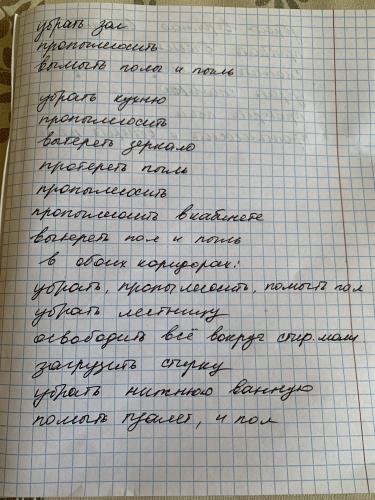 убрать зал
пропылесосить
вымыть полы и пыль
убрать кухню
пропылесосить
вытереть зеркало
протереть пыль
пропылесосить
пропылесосить в кабинете
вытереть пол и пыль
в обоих коридорах:
убрать, пропылесосить, помыть пол
убрать лестницу
освободить всё вокруг стир. маш
загрузить стирку
убрать нижнюю ванную
помыть туалет, и пол